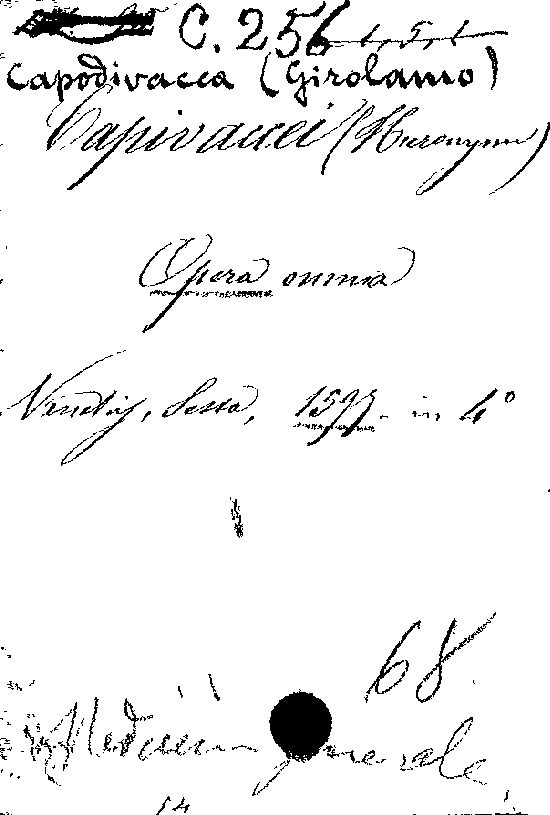 C. 256
Capodivacca (Girolamo)
Capivaccei (Hieronymi)
Opera omnia
Venetiis, Sessa, 1597. in 4°
68
Médecine générale